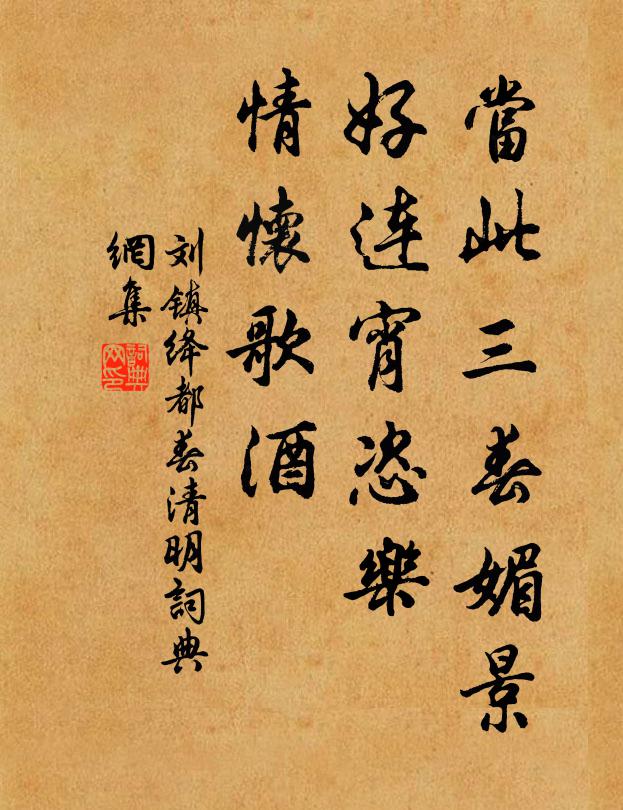 當此三春媚景
好連宵恣樂
情懷歌酒
刘镇绛都春清明詞典
網集
詞典
网印